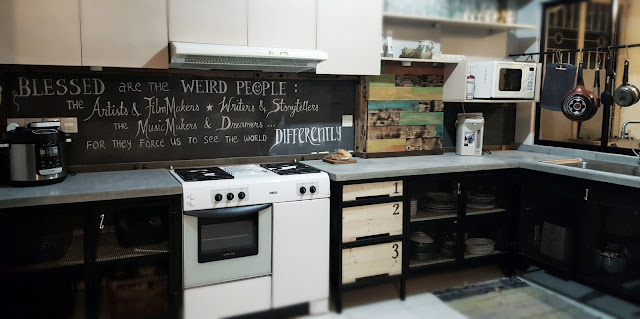 BLESSED are the WEIRD PEOPLE:
the Artists & FilmMakers ★ Writers & Storytellers
THE MusicMakers & Dreamers ...
FOR THEY FORCE US TO SEE THE WORLD DIFFERENTLY
1
2
3